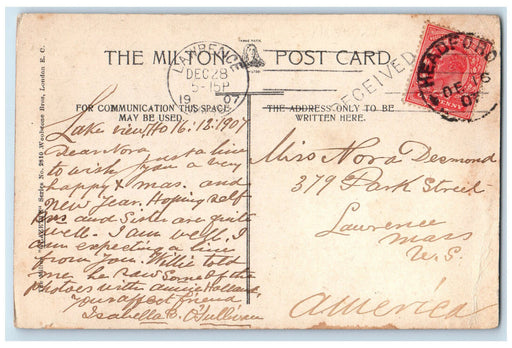 THE MILTON POST CARD
LAWRENCE
DEC 28
5-15P
1907
RECEIVED
HEADFORD
DE 16
07
FOR COMMUNICATION THIS SPACE
MAY BE USED
THE ADDRESS ONLY TO BE
WRITTEN HERE.
Series No. 2810 Woolstone Bros., London E. C.
Lake view, 16:12:1907
Dear Nora just a line
to wish you a very
happy X mas. and
new year. Hoping self
Bros and Sister are quite
well. I am well, I
am expecting a line
from you. Willie told
me he saw some of the
photoes with annie Holland,
your affect friend
Isabella B. O'Sullivan
Miss Nora Desmond
379 Park Street
Lawrence
Mass
U.S.
America